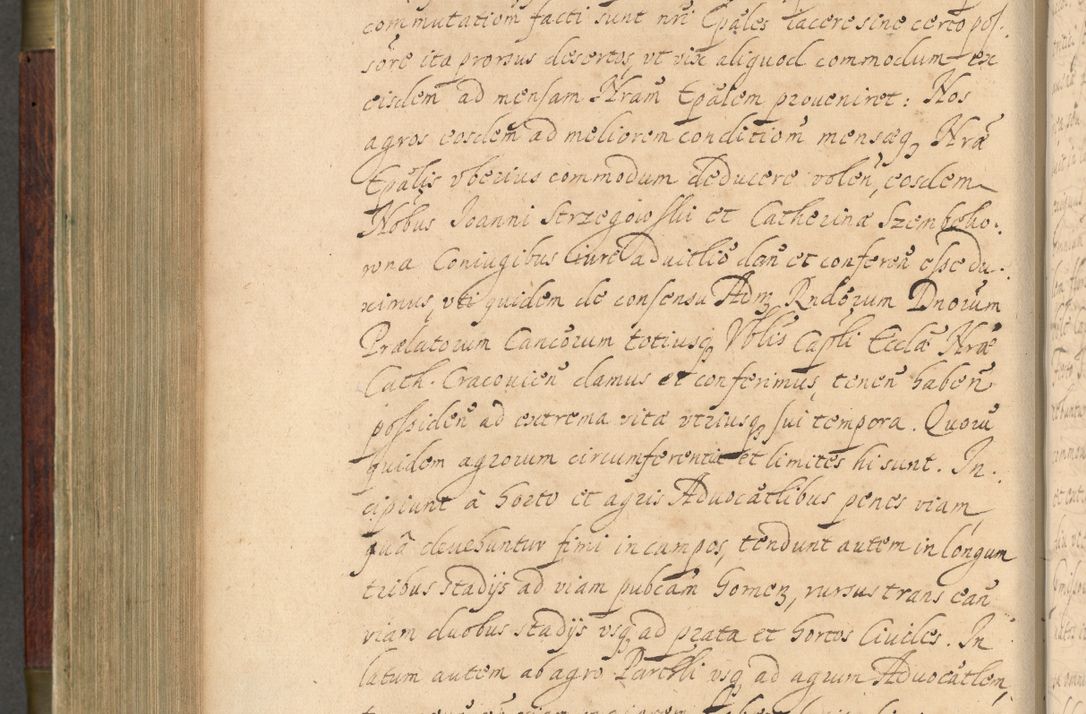 commutatiom facti sunt nri Epales iacere sine certo pos
sore ita prorsus desertos, vt vix aliquod commodum ex
eisdem ad mensam Nram Epalem proueniret: Nos
agros eosdem ad meliorem conditiom mensæq Nræ
Epalis vberius commodum deducere volen, eosdem
Nobus Joanni Strzegowski et Catherinæ Szembeko.
rona Coniugibus Iure aduitlio dan et conferen esse du.
ximus, vti quidem de consensu Adm Rndorum Dnorum
Prælatorum Cancorum totiusq Vblis Capli Ecclæ Nræ
Cath. Cracouien damus et conferimus, tenen haben
possiden ad extrema vitæ vtriusq sui tempora. Quoru
quidem agrorum circumferentiæ et limites hi sunt. In.
cipiunt à horto et agris Aduocatlibus penes viam
quâ deuehuntur fimi in campos, tendunt autem in longum
tribus stadijs ad viam pubcam Gornez, rursus trans ean
viam duobus stadijs vsq ad prata et hortos Ciuiles. In
latum autem ab agro Parchli vsq ad agrum Aduocatlem,